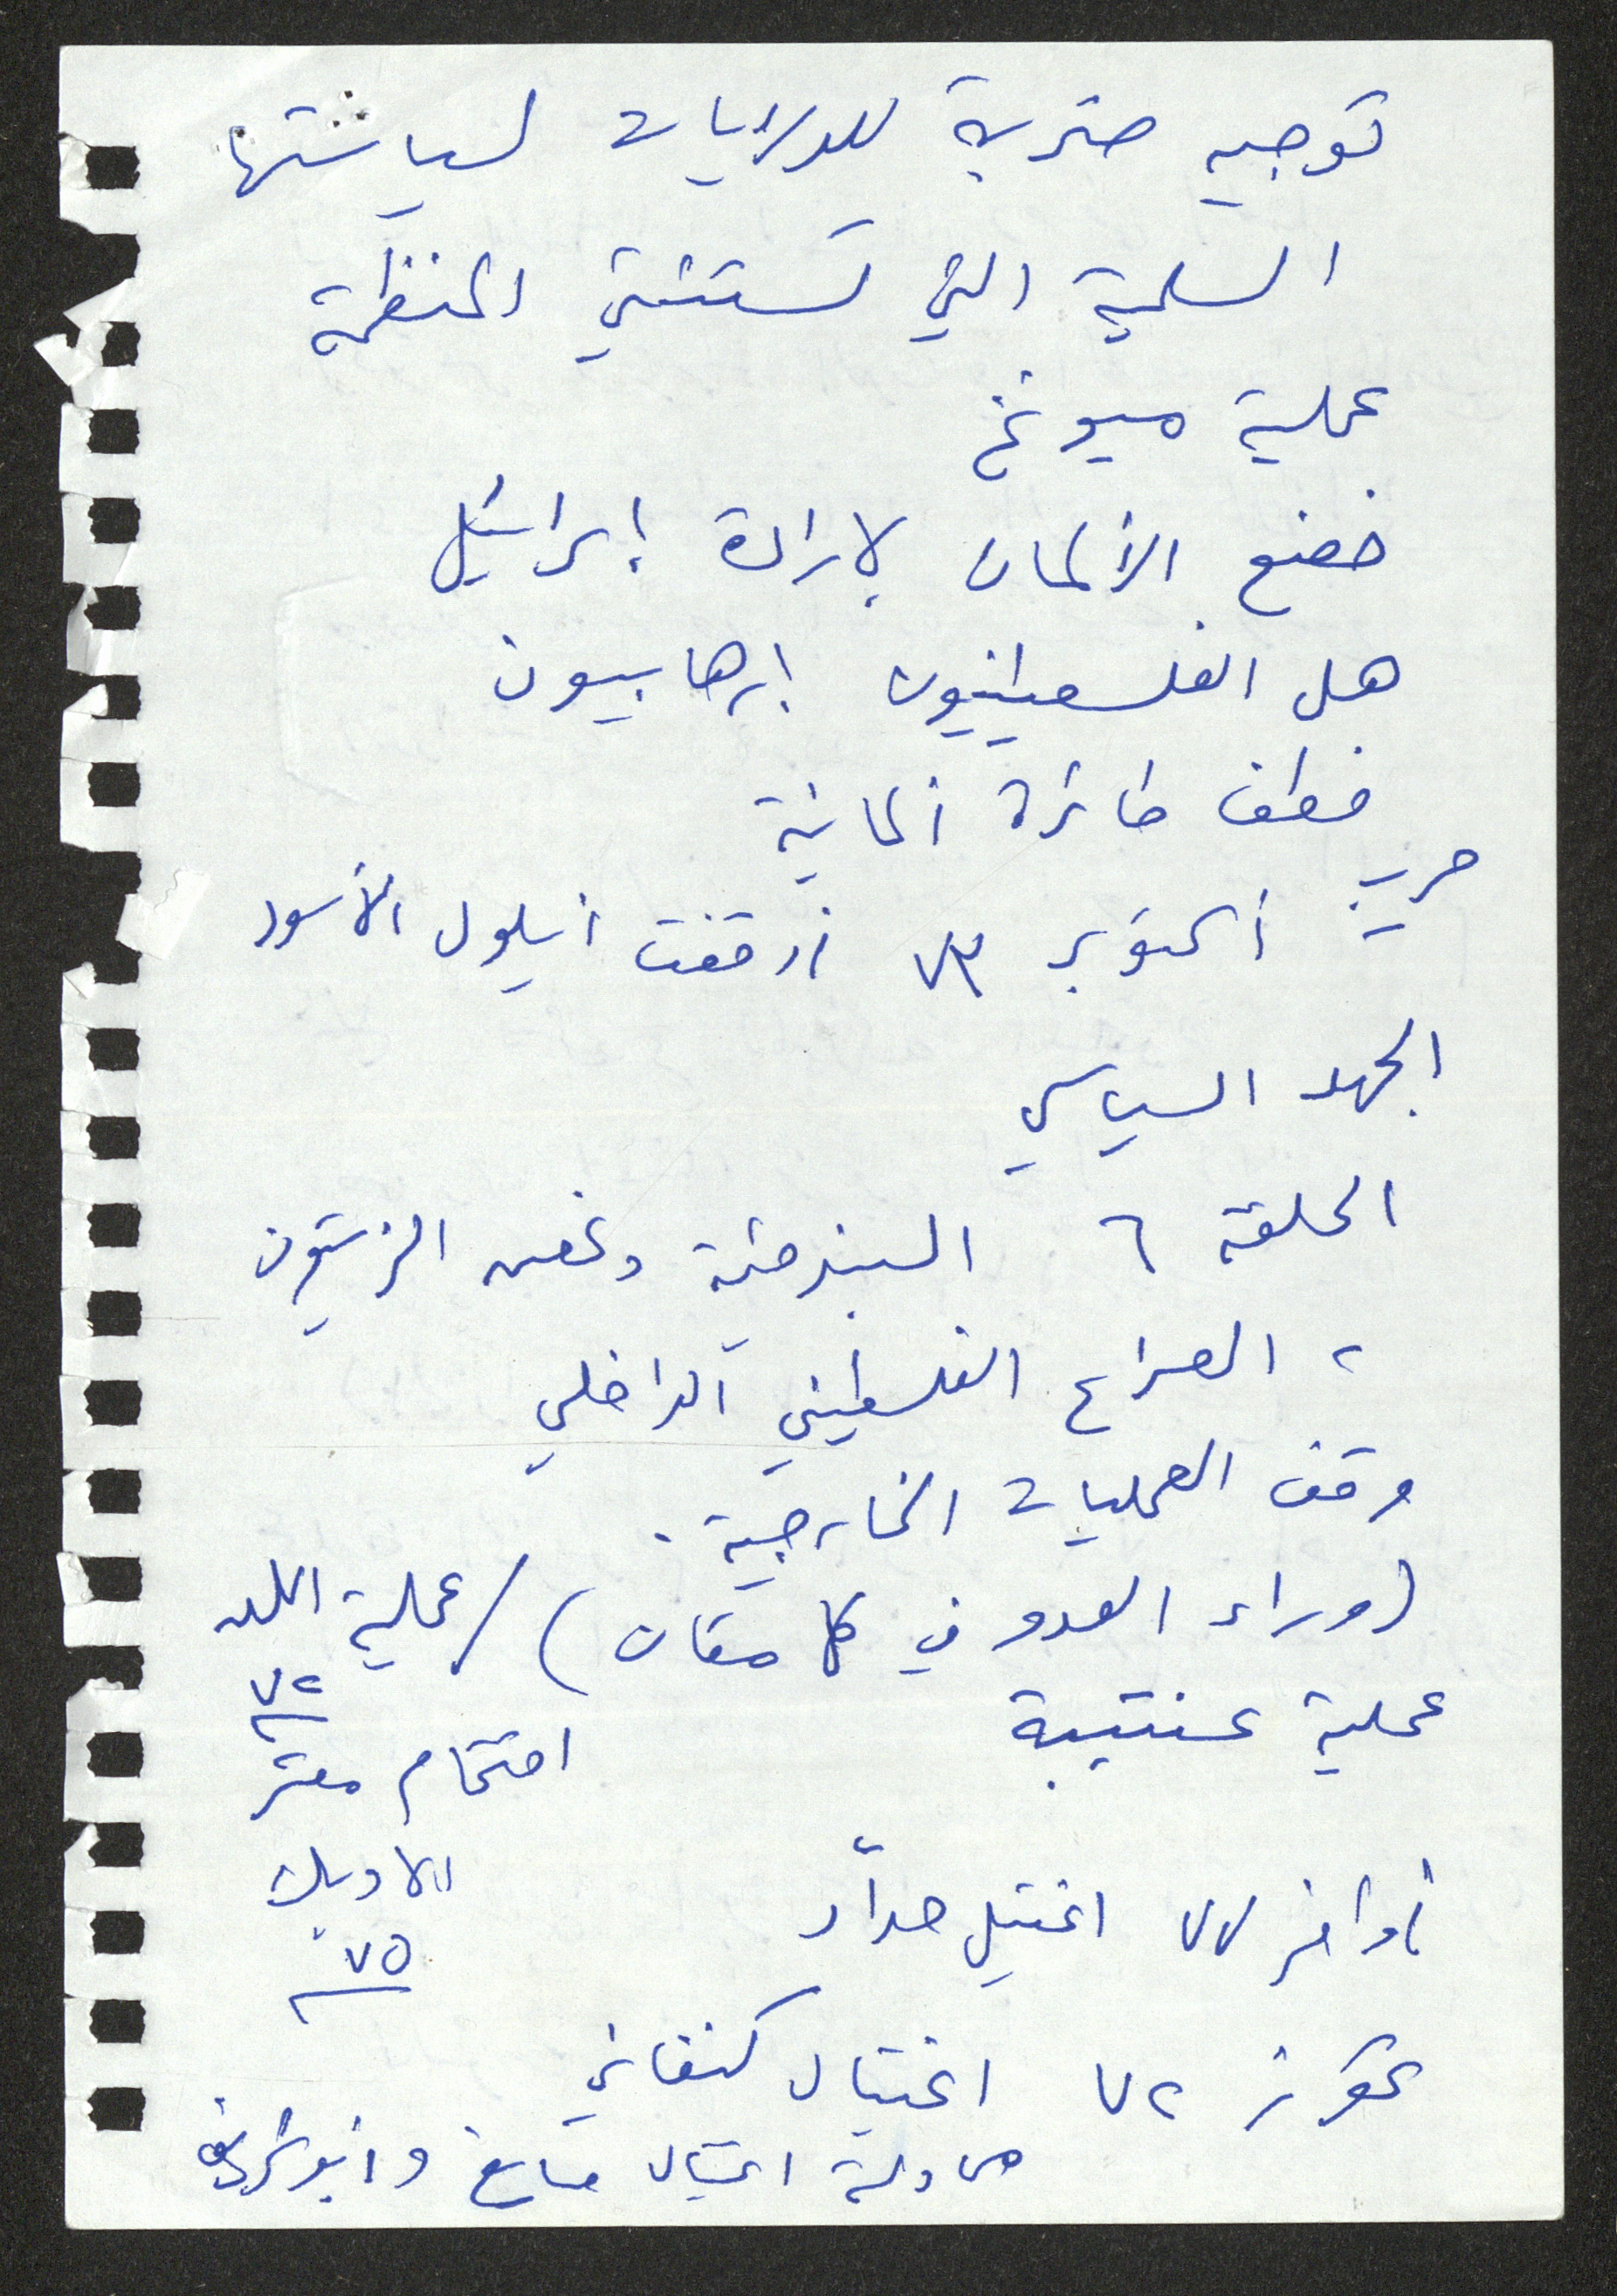 توجيه ضربة للولايات لسياستها
السلمية التي تستثني المنظمة
عملية ميونخ
خضع الألمان لإرادة إسرائيل
هل الفلسطينيون إرهابيون
خطف طائرة ألمانية
حرب أكتوبر ٧٣ أوقفت أيلول الأسود
الجهد السياسي
الحلقة ٦ البندقية وغصن الزيتون
، الصراع الفلسطيني الداخلي
وقف العمليات الخارجية.
(وراء العدو في كل مكان) / عملية اللد
٧٢
عملية عنتيبة
اقتحام مقر
الاوبك
٧٥
أواخر ٧٧ اغتيل حدّاد
تموز ٧٢ اغتيال كنفاني
محاولة اغتيال صايغ وأبو شريف